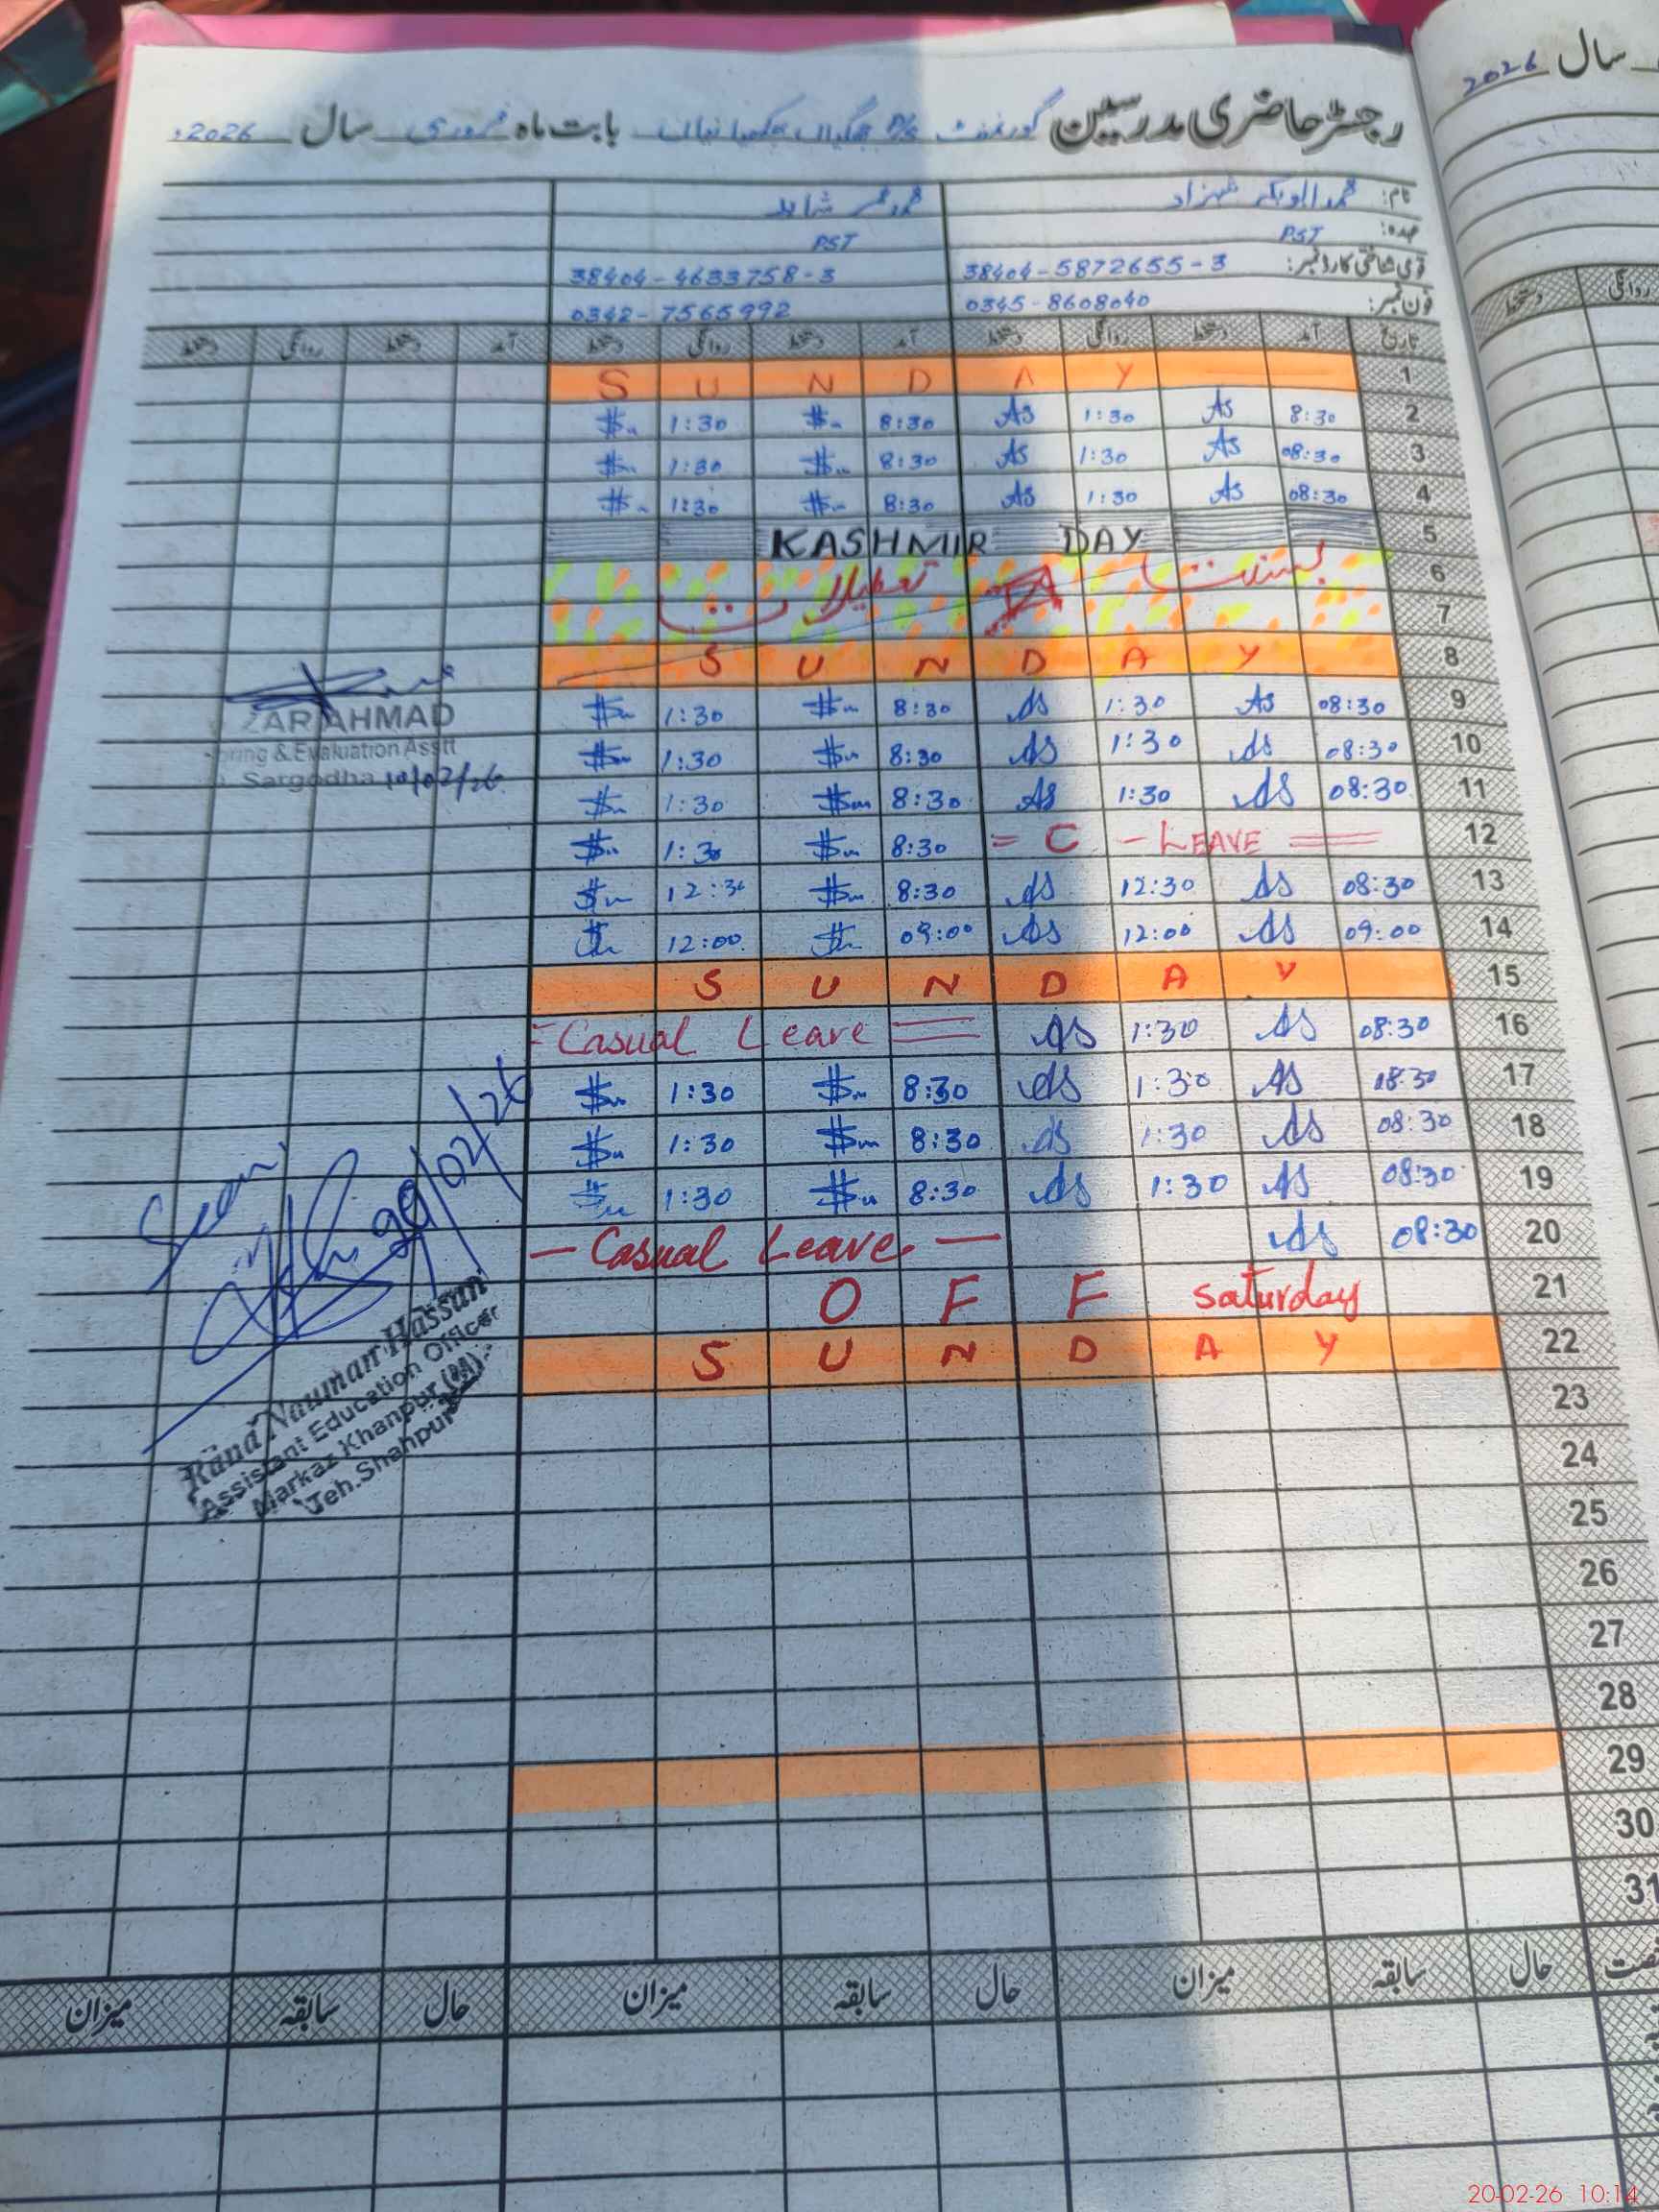 رجسٹر حاضری مدرسین گورنمنٹ P/S بابت ماہ فروری سال 2026ء
سال 2026
نام: محمد ابوبکر شہزاد محمد عمر شاہد
عہدہ: PST PST
قومی شناختی کارڈ نمبر: 38404-5872655-3 38404-4633758-3
فون نمبر: 0345-8608040 0342-7565992
تاریخ آمد دستخط روانگی دستخط آمد دستخط روانگی دستخط آمد دستخط روانگی دستخط
روانگی دستخط
1 SUNDAY
2 8:30 As 1:30 As 8:30 1:30
3 08:30 As 1:30 As 8:30 1:30
4 08:30 As 1:30 As 8:30 1:30
5 KASHMIR DAY
6 بسنت تعطیلات
7
8 SUNDAY
9 08:30 As 1:30 As 8:30 1:30
10 08:30 As 1:30 As 8:30 1:30
11 08:30 As 1:30 As 8:30 1:30
12 = C - LEAVE = 8:30 1:30
13 08:30 As 12:30 As 8:30 12:30
14 09:00 As 12:00 As 09:00 12:00
15 SUNDAY
16 08:30 As 1:30 As = Casual Leave =
17 08:30 As 1:30 As 8:30 1:30
18 08:30 As 1:30 As 8:30 1:30
19 08:30 As 1:30 As 8:30 1:30
20 08:30 As - Casual Leave -
21 OFF Saturday
22 SUNDAY
23
24
25
26
27
28
29
30
31
ZAR AHMAD
oring & Evaluation Asstt
Sargodha 10/02/26
Seen
20/02/26
Rana Nauman Hassan
Assistant Education Officer
Markaz Khanpur (M)
Teh.Shahpur
حال سابقہ میزان حال سابقہ میزان حال سابقہ میزان
20-02-26 10:14